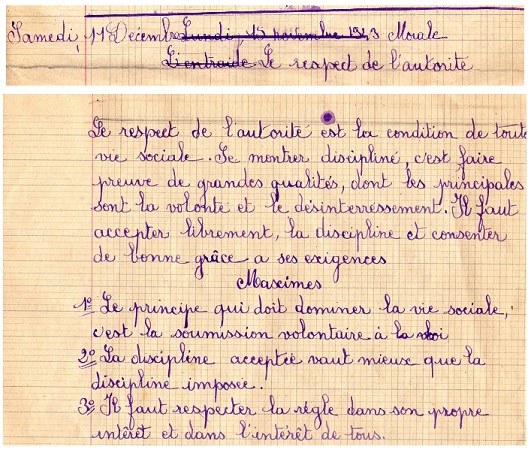 Samedi, 11 Décembre Lundi, 15 novembre 1943 Morale
L'entraide Le respect de l'autorité
Le respect de l'autorité est la condition de toute
vie sociale. Se montrer discipliné, c'est faire
preuve de grandes qualités, dont les principales
sont la volonté et le désinterressement. Il faut
accepter librement, la discipline et consenter
de bonne grâce a ses exigences
Maximes
1º Le principe qui doit dominer la vie sociale,
c'est la soumission volontaire à la loi
2º La discipline acceptée vaut mieux que la
discipline imposée.
3º Il faut respecter la règle dans son propre
intérêt et dans l'intérêt de tous.